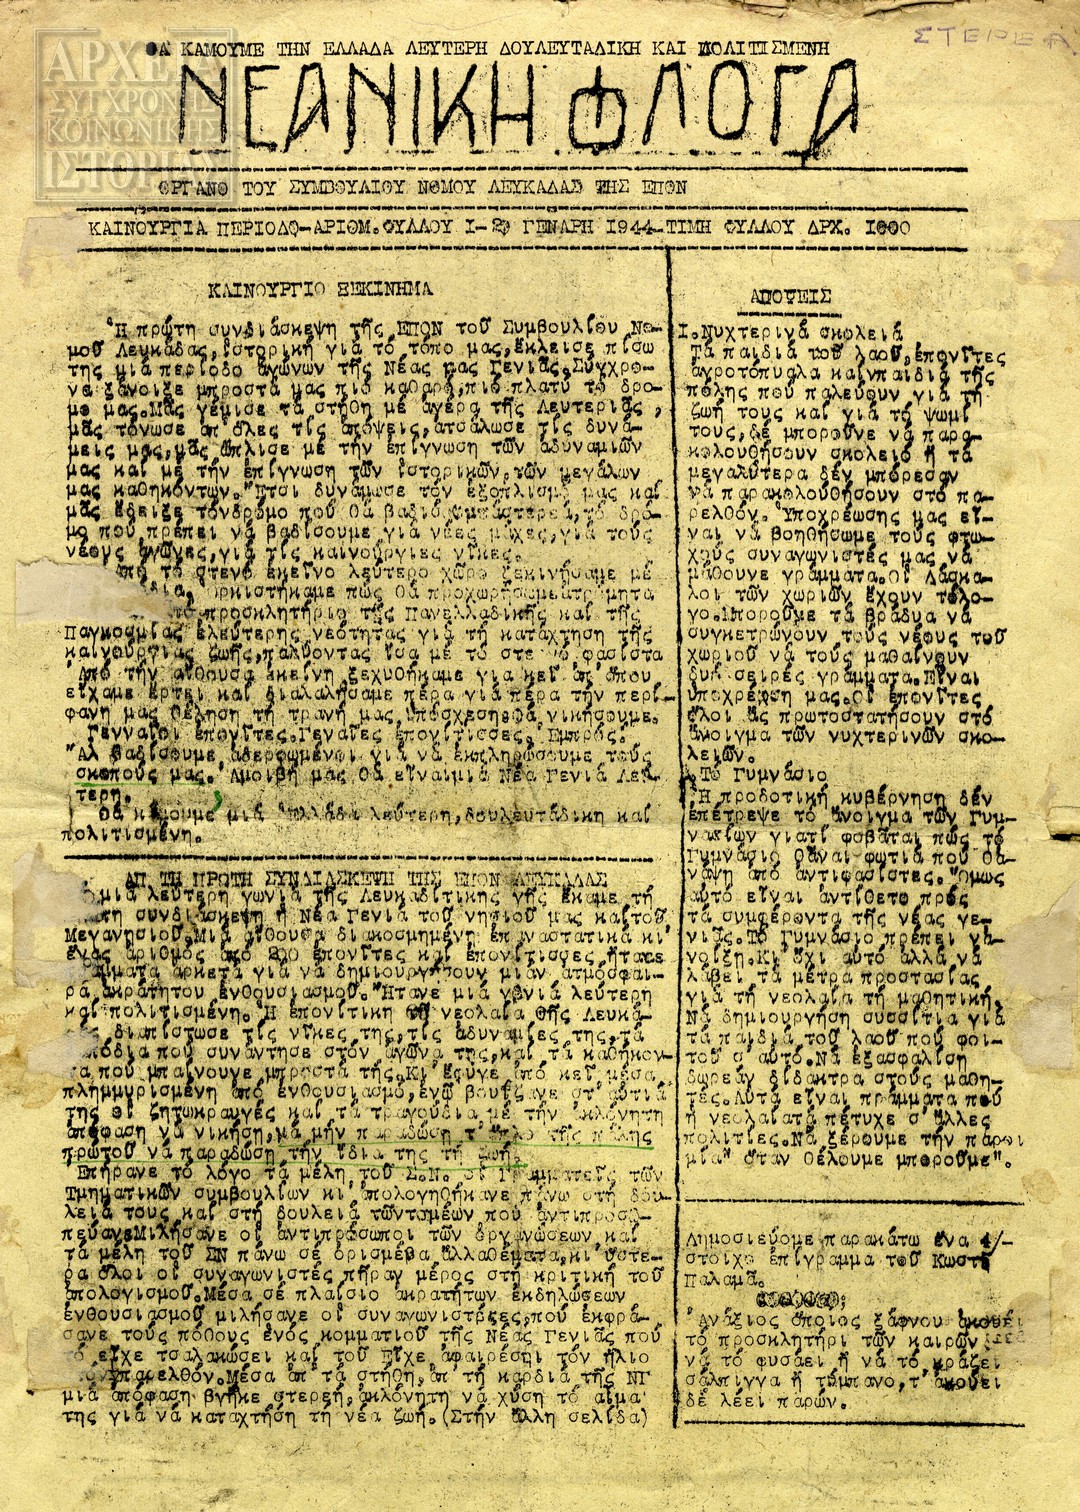 ΣΤΕΡΕΑ
ΑΡΧΕΙΑ
ΣΥΓΧΡΟΝΗΣ
ΚΟΙΝΩΝΙΚΗΣ
ΙΣΤΟΡΙΑΣ
ΘΑ ΚΑΜΟΥΜΕ ΤΗΝ ΕΛΛΑΔΑ ΛΕΥΤΕΡΗ ΔΟΥΛΕΥΤΑΔΙΚΗ ΚΑΙ ΠΟΛΙΤΙΣΜΕΝΗ
ΝΕΑΝΙΚΗ ΦΛΟΓΑ
ΟΡΓΑΝΟ ΤΟΥ ΣΥΜΒΟΥΛΙΟΥ ΝΟΜΟΥ ΛΕΥΚΑΔΑΣ ΤΗΣ ΕΠΟΝ
ΚΑΙΝΟΥΡΓΙΑ ΠΕΡΙΟΔΟ-ΑΡΙΘΜ.ΦΥΛΛΟΥ Ι- ΓΕΝΑΡΗ 1944-ΤΙΜΗ ΦΥΛΛΟΥ ΔΡΧ. 1000
ΚΑΙΝΟΥΡΓΙΟ ΞΕΚΙΝΗΜΑ
Ἡ πρώτη συνδιάσκεψη τῆς ΕΠΟΝ τοῦ Συμβουλίου Νο-
μοῦ Λευκάδας,ἱστορική γιά τό τόπο μας,ἔκλεισε πίσω
της μιά περίοδο ἀγώνων τῆς Νέας μας Γενιᾶς.Σύγχρο-
να ξάνοιξε μπροστά μας πιό καθαρό,πιό πλατύ τό δρο-
μο μας.Μᾶς γέμισε τά στήθη μέ ἀγέρα τῆς Λευτεριᾶς,
μᾶς τόνωσε ἀπ' ὅλες τίς ἀπόψεις,ἀτσάλωσε τίς δυνά-
μεις μας,μᾶς ὥπλισε μέ τήν ἐπίγνωση τῶν ἀδυναμιῶν
μας καί μέ τήν ἐπίγνωση τῶν ἱστορικῶν,τῶν μεγάλων
μας καθηκόντων.Ἔτσι δυνάμωσε τόν ἐξοπλισμό μας καί
μᾶς ἔδειξε τόνδρόμο πού θά τό δρό-
μο πού πρέπει νά βαδίσουμε γιά νέες μάχες,γιά τούς
νέους ἀγῶνες,γιά τίς καινούργιες νίκες.
Ἀπό τό στενό ἐκεῖνο λεύτερο χῶρο ξεκινήσαμε μέ
ὁρκιστήκαμε πώς θά προχωρήσουμε
προσκλητήριο τῆς Πανελλαδικῆς καί τῆς
Παγκοσμίας ἐλεύτερης νεότητας γιά τή κατάχτηση τῆς
καινούργιας ζωῆς,παλύοντας ἴσα μέ τό φασίστα
Ἀπό τήν αἴθουσα ἐκείνη ξεχυθήκαμε γιά κεῖ ἀπ' ὅπου
εἴχαμε ἔρτει καί διαλαλήσαμε πέρα γιά πέρα τήν περί-
φανη μας θέληση τή τρανή μας ὑπόσχεση.Θά νικήσουμε.
Γενναῖοι ἐπονίτες.Γενναῖες ἐπονίτισσες, Ἐμπρός.
Ἄς βαδίσουμε ἀδερφωμένοι γιά νά ἐκπληρώσουμε τούς
σκοπούς μας. Ἀμοιβή μας θά εἶναιμιά Νέα Γενιά Λεύ-
τερη.
Θά κάμουμε μιά Ἑλλάδα λεύτερη,δουλευτάδικη καί
πολιτισμένη.
ΑΠ ΤΗ ΠΡΩΤΗ ΣΥΝΔΙΑΣΚΕΨΗ ΤΗΣ ΕΠΟΝ ΛΕΥΚΑΔΑΣ
μιά λεύτερη γωνιά τῆς Λευκαδίτικης γῆς ἔκαμε τή
συνδιάσκεψη ἡ Νέα Γενιά τοῦ νησιοῦ μας καίτοῦ
Μεγανησιοῦ.Μιά αἴθουσα διακοσμημένη ἐπαναστατικά κι'
ἕνας ἀριθμός ἀπό 200 ἐπονίτες καί ἐπονίτισσες ἤτανε
πράμματα ἀρκετά γιά νά δημιουργήσουν μιάν ἀτμόσφαι-
ρα ἀκράτητου ἐνθουσιασμοῦ.Ἤτανε μιά γωνιά λεύτερη
καί πολιτισμένη. Ἡ ἐπονίτικη νεολαία τῆς Λευκά-
δας διαπίστωσε τίς νίκες της,τίς ἀδυναμίες της,τά
ἐμπόδια πού συνάντησε στόν ἀγῶνα της,καί τά καθήκον-
τα πού μπαίνουνε μπροστά της.Κι' ἔφυγε ἀπό κεῖ μέσα
πλημμυρισμένη ἀπό ἐνθουσιασμό,ἐνῶ βουΐζανε στ' αὐτιά
της οἱ ζητωκραυγές καί τά τραγούδια μέ τήν ἀκλόνητη
ἀπόφαση νά νικήση,νά μήν παραδώση τ' ὅπλο τῆς πάλης
πρωτοῦ νά παραδώση τήν ἴδια της τή ζωή.
Ἐπήρανε τό λόγο τά μέλη τοῦ Σ.Ν. οἱ Γραμματεῖς τῶν
Τμηματικῶν συμβουλίων κι ἀπολογηθήκανε πάνω στή δου-
λειά τους καί στή δουλειά τῶντομέων πού ἀντιπροσω-
πεύανε.Μιλήσανε οἱ ἀντιπρόσωποι τῶν ὀργανώσεων καί
τά μέλη τοῦ ΣΝ πάνω σέ ὁρισμένα ἀλλαθέματα,κι' ὕστε-
ρα ὅλοι οἱ συναγωνιστές πῆραν μέρος στή κριτική τοῦ
ἀπολογισμοῦ.Μέσα σέ πλαίσιο ἀκρατήτων ἐκδηλώσεων
ἐνθουσιασμοῦ μιλήσανε οἱ συναγωνιστές,πού ἐκφρά-
σανε τούς πόθους ἑνός κομματιοῦ τῆς Νέας Γενιᾶς πού
τό εἶχε τσαλακώσει καί τοῦ εἶχε ἀφαιρέσει τόν ἥλιο
Μέσα ἀπ τά στήθη,ἀπ τή καρδιά τῆς ΝΓ
μιά ἀπόφαση βγῆκε στερεή,ἀκλόνητη νά χύση τό αἷμα
της γιά νά καταχτήση τή νέα ζωή.(Στήν ἄλλη σελίδα)
ΑΠΟΨΕΙΣ
Ι.Νυχτερινά σκολειά
Τά παιδιά τοῦ λαοῦ,ἐπονίτες
ἀγροτόπυαλα καίπαιδιά τῆς
πόλης πού παλεύουν γιά τή
ζωή τους καί γιά τό ψωμί
τους,δέ μποροῦνε νά παρα-
κολουθήσουν σκολειό ἤ τά
μεγαλύτερα δέν μπόρεσαν
νά παρακολουθήσουν στό πα-
ρελθόν. Ὑποχρέωσης μας εἶ-
ναι νά βοηθήσωμε τούς φτω-
χούς συναγωνιστές μας νά
μάθουνε γράμματα.Οἱ Δάσκα-
λοι τῶν χωριῶν ἔχουν τόλο-
γο.Μποροῦμε τά βράδυα νά
συγκετρώνουν τούς νέους τοῦ
χωριοῦ νά τούς μαθαίνουν
δυό σειρές γράμματα.Εἶναι
ὑποχρέωση μας.Οἱ ἐπονίτες
ὅλοι ἄς πρωτοστατήσουν στό
ἄνοιγμα τῶν νυχτερινῶν σκο-
λειῶν.
Τό Γυμνάσιο
Ἡ προδοτική κυβέρνηση δέν
ἐπέτρεψε τό ἄνοιγμα τῶν Γυμ-
νασίων γιατί φοβᾶται πώς τό
Γυμνάσιο θἆναι φωτιά πού θά
νάψη ἀπό ἀντιφασίστες. Ὅμως
αὐτό εἶναι ἀντίθετο πρός
τά συμφέροντα τῆς νέας γε-
νιᾶς.Τό Γυμνάσιο πρέπει νά
νοίξη.Κι ὄχι αὐτό ἀλλά νά
λάβει τά μέτρα προστασίας
γιά τή νεολαία τή μαθητική.
Νά δημιουργήση συσσίτια γιά
τά παιδιά τοῦ λαοῦ πού φοι-
τοῦ σ' αὐτό.Νά ἐξασφαλίση
δωρεάν δίδακτρα στούς μαθη-
τές.Αὐτά εἶναι πράμματα πού
ἡ νεολαίατά πέτυχε σ' ἄλλες
πολιτίες.Νά ξέρουμε τήν παροι
μία" ὅταν θέλουμε μποροῦμε".
Δημοσιεύομε παρακάτω ἕνα 4/-
στοιχο ἐπίγραμμα τοῦ Κωστῆ
Παλαμᾶ.
Ἀνάξιος ὅποιος ξάφνου ἀκούει
τό προσκλητήρι τῶν καιρῶν
νά τό φυσάει ἤ νά τό κράζει
σάλπιγγα ἤ τύμπανο,τ' ἀκούει
δέ λέει παρών.